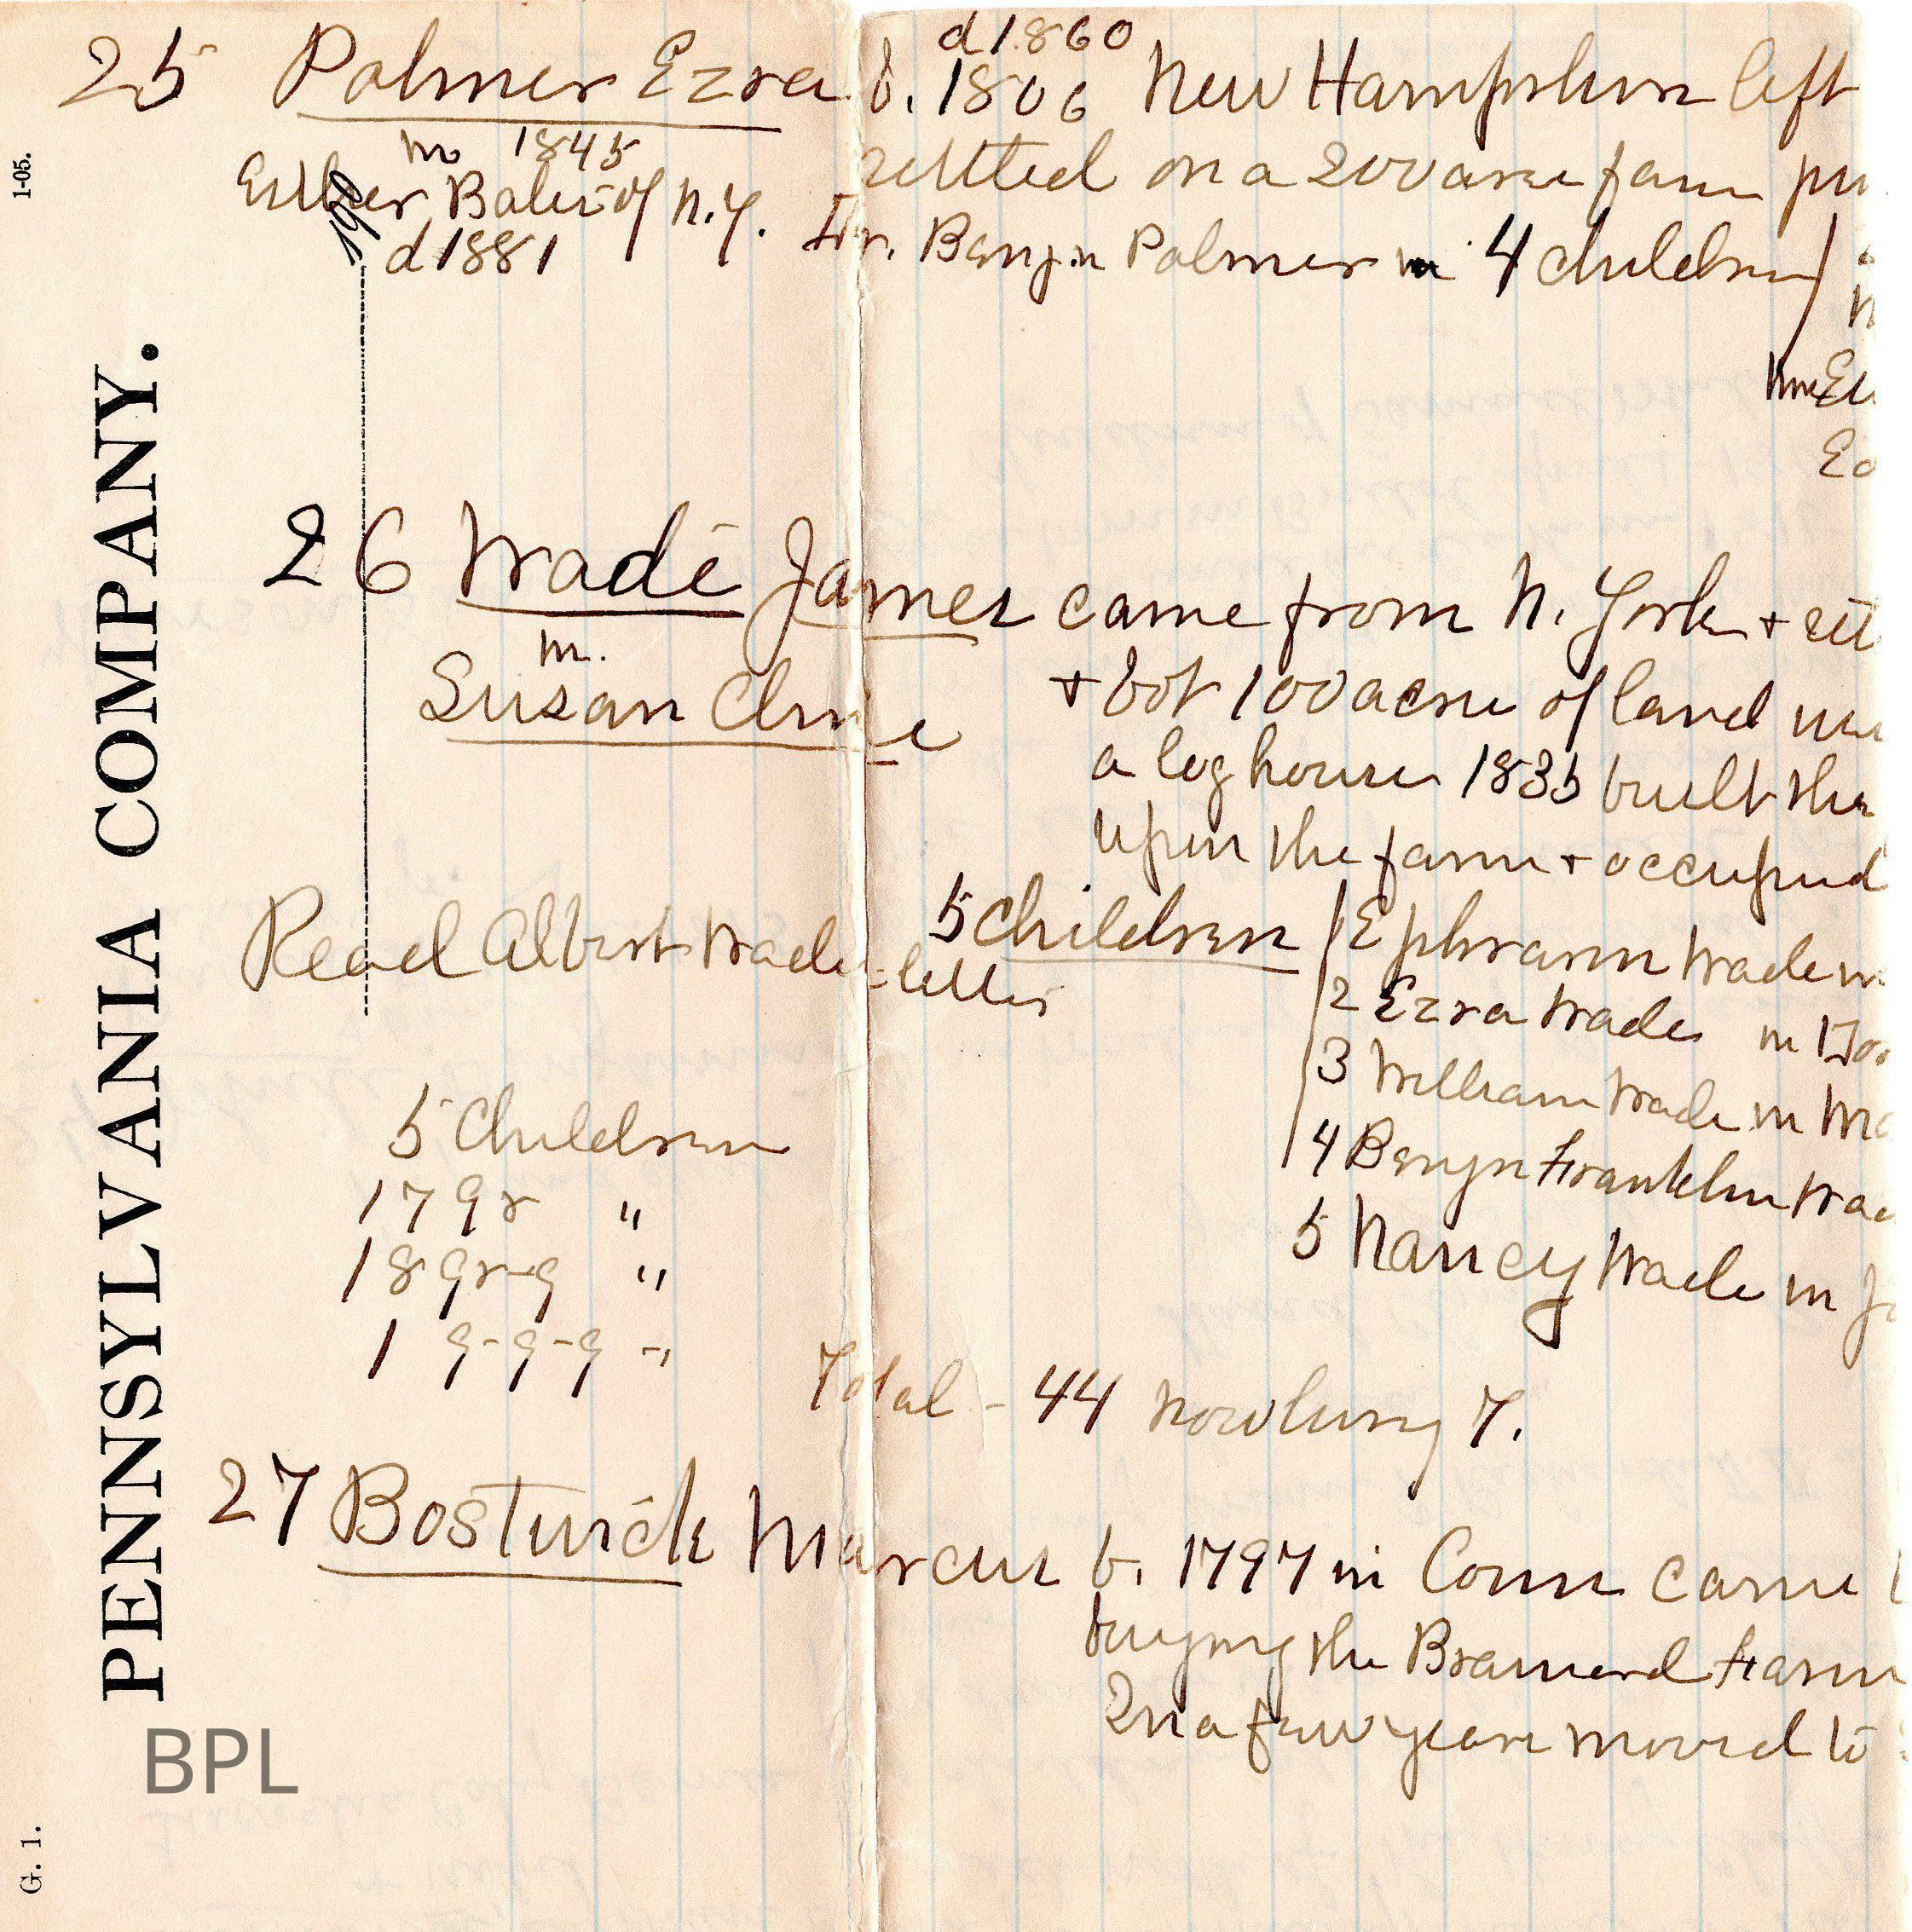 d 1860
25 Palmer Ezra b. 1806 New Hampshire left
m 1845
settled on a 200 acre farm
Esther of N.Y. Dr. Benjn Palmer m 4 children
d 1881
190
26 Wade James came from N. York +
m.
Susan Cline
+ bot 100 acres of land
a log house 1835 built the
upon the farm + occupied
5 Children 1 Ephraim Wade m
Read Albert Wade letter
2 Ezra Wade m
3 William Wade m
4 Benjn Franklin
5 Nancy Wade m
5 Children
17 gr "
18 gr-g "
1 g-g-g -"
Total - 44 now living 7.
27 Bostwick Marcus b. 1797 in Conn came
buying the Brainerd Farm
In a few years moved to
PENNSYLVANIA COMPANY.
1-05.
G. 1.
BPL